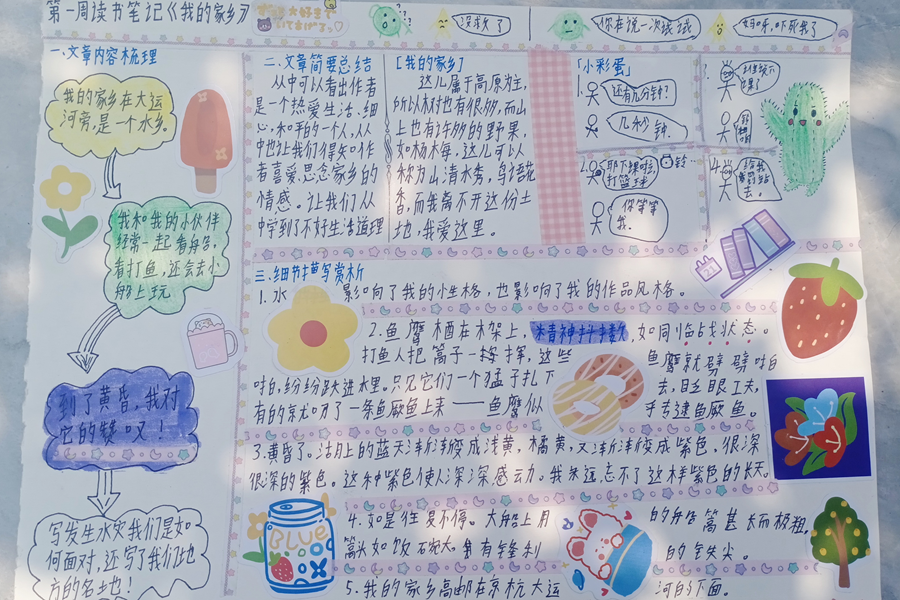 第一周读书笔记《我的家乡》
大好きまで
没救了
你在说一次试试
妈呀,吓死我了
一.文章内容梳理
我的家乡在大运
河旁,是一个水乡。
我和我的小伙伴
经常一起看船只,
看打鱼,还会去小
船上玩
到了黄昏,我对
它的赞叹!
写发生水灾我们是如
何面对,还写了我们地
方的名土!
二.文章简要总结
从中可以看出作者
是一个热爱生活,细
心,和的一个人,从
中也让我们得知作
者喜爱,思念家乡的
情感。让我们从
中学到了不好生活道理
[我的家乡]
这儿属于高原为主,
所以树也有很多,而山
上也有许多的野果
如杨木每,这儿可以
称为山清水秀,鸟语花
香,而我离不开这份土
地,我爱这里。
「小彩蛋」
1.
还有几分钟?
几秒钟.
2.
耶下课啦,
打篮球
铃…
你等等
我。
3.
4.
给我
去。
三.细节描写赏析
1.水 影响了我的小性格,也影响了我的作品风格。
2.鱼鹰栖在木架上,精神抖擞,如同临战状态。
打鱼人把篙子一挥,这些 鱼鹰就劈劈啪
啪,纷纷跃进水里。只见它们一个猛子扎下 去,眨眼工夫,
有的就叼了一条鱼鳜鱼上来——鱼鹰似 乎专逮鱼鳜鱼。
3.黄昏了。沽月上的蓝天渐渐变成浅黄,橘黄,又渐渐变成紫色,很深
很深的紫色。这种紫色使人深深感动。我永远忘不了这样紫色的长天。
4.如是住 不停。大船上用 的船篙甚长而极粗,
篙头如饭碗大,有锋利 的铁尖。
BLUE
5.我的家乡高邮在京杭大运 河的下面。
21